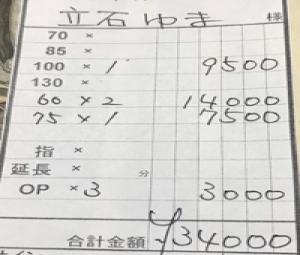 立石ゆき 様
70 ×
85 ×
100 × 1 9500
130 ×
60 × 2 14000
75 × 1 7500
指 ×
延長 × 分
OP × 3 3000
合計金額 ¥34000